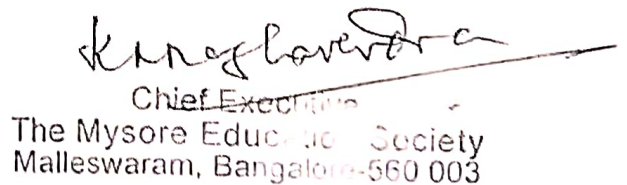 Chief Executive
The Mysore Education Society
Malleswaram, Bangalore-560 003